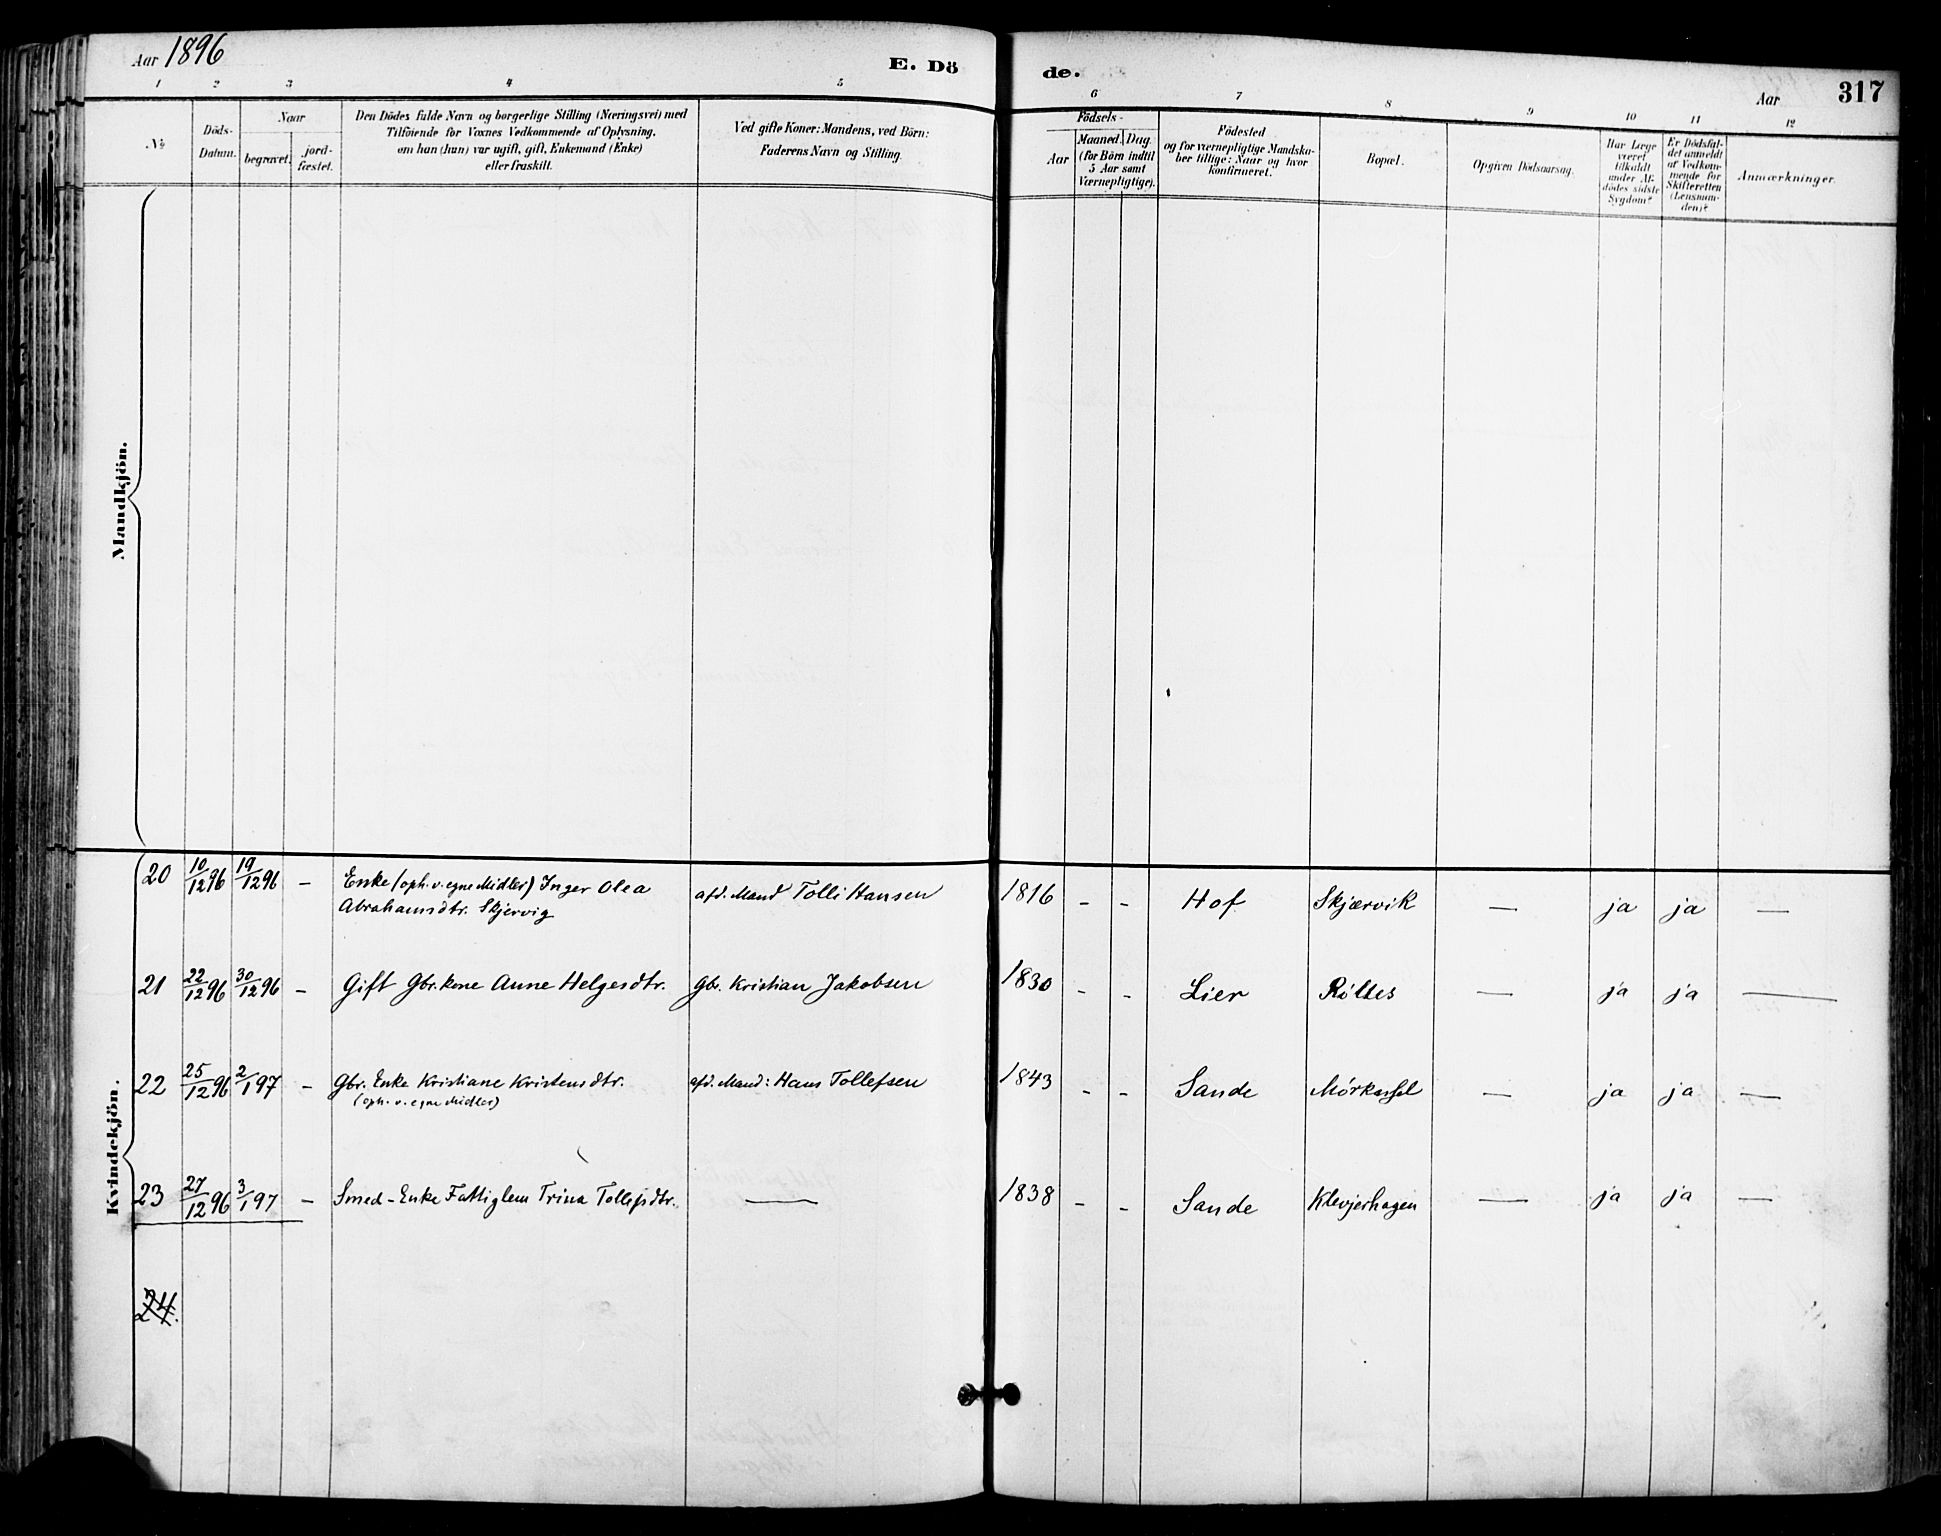 Aar 1896
E. Dö
de.
Aar
317
1 2 3 4 5 6 7 8 9 10 11 12
№
Döds-
Datum.
Naar
begravet.
jord-
fæstet.
Den Dödes fulde Navn og borgerlige Stilling (Næringsvei) med
Tilföiende for Voxnes Vedkommende af Oplysning,
om han (hun) var ugift, gift, Enkemand (Enke)
eller fraskilt.
Ved gifte Koner: Mandens, ved Börn:
Faderens Navn og Stilling.
Födsels-
Aar
Maaned. Dag.
(for Börn indtil
5 Aar samt
Værnepligtige).
Födested
og for værnepligtige Mandska-
ber tillige: Naar og hvor
konfirmeret.
Bopæl.
Opgiven Dödsaarsag.
Har Læge
været
tilkaldt
under Af-
dödes sidste
Sygdom?
Er Dödsfal-
det anmeldt
af Vedkom-
mende for
Skifteretten
(Lensman-
den)?
Anmærkninger.
Mandkjön.
Kvindekjön.
20 10/12 96 19/12 96 – Enke (oph. v. egne Midler) Inger Olea afd. Mand Tolli Hansen 1816 - - Hof Skjærvik — ja ja —
Abrahamsdtr. Skjervig
21 22/12 96 30/12 96 – Gift Gbr. kone Anne Helgesdtr. Gbr. Kristian Jakobsen 1830 - - Lier — ja ja —
22 25/12 96 2/1 97 – Gbr. Enke Kristiane Kristensdtr. afd. Mand: Hans Tollefsen 1843 - - Sande — ja ja —
(oph. v. egne Midler)
23 27/12 96 3/1 97 – Smed-Enke Fattiglem Trina Tollefsdtr. — 1838 - - Sande Klevjerhagen — ja ja —
24.